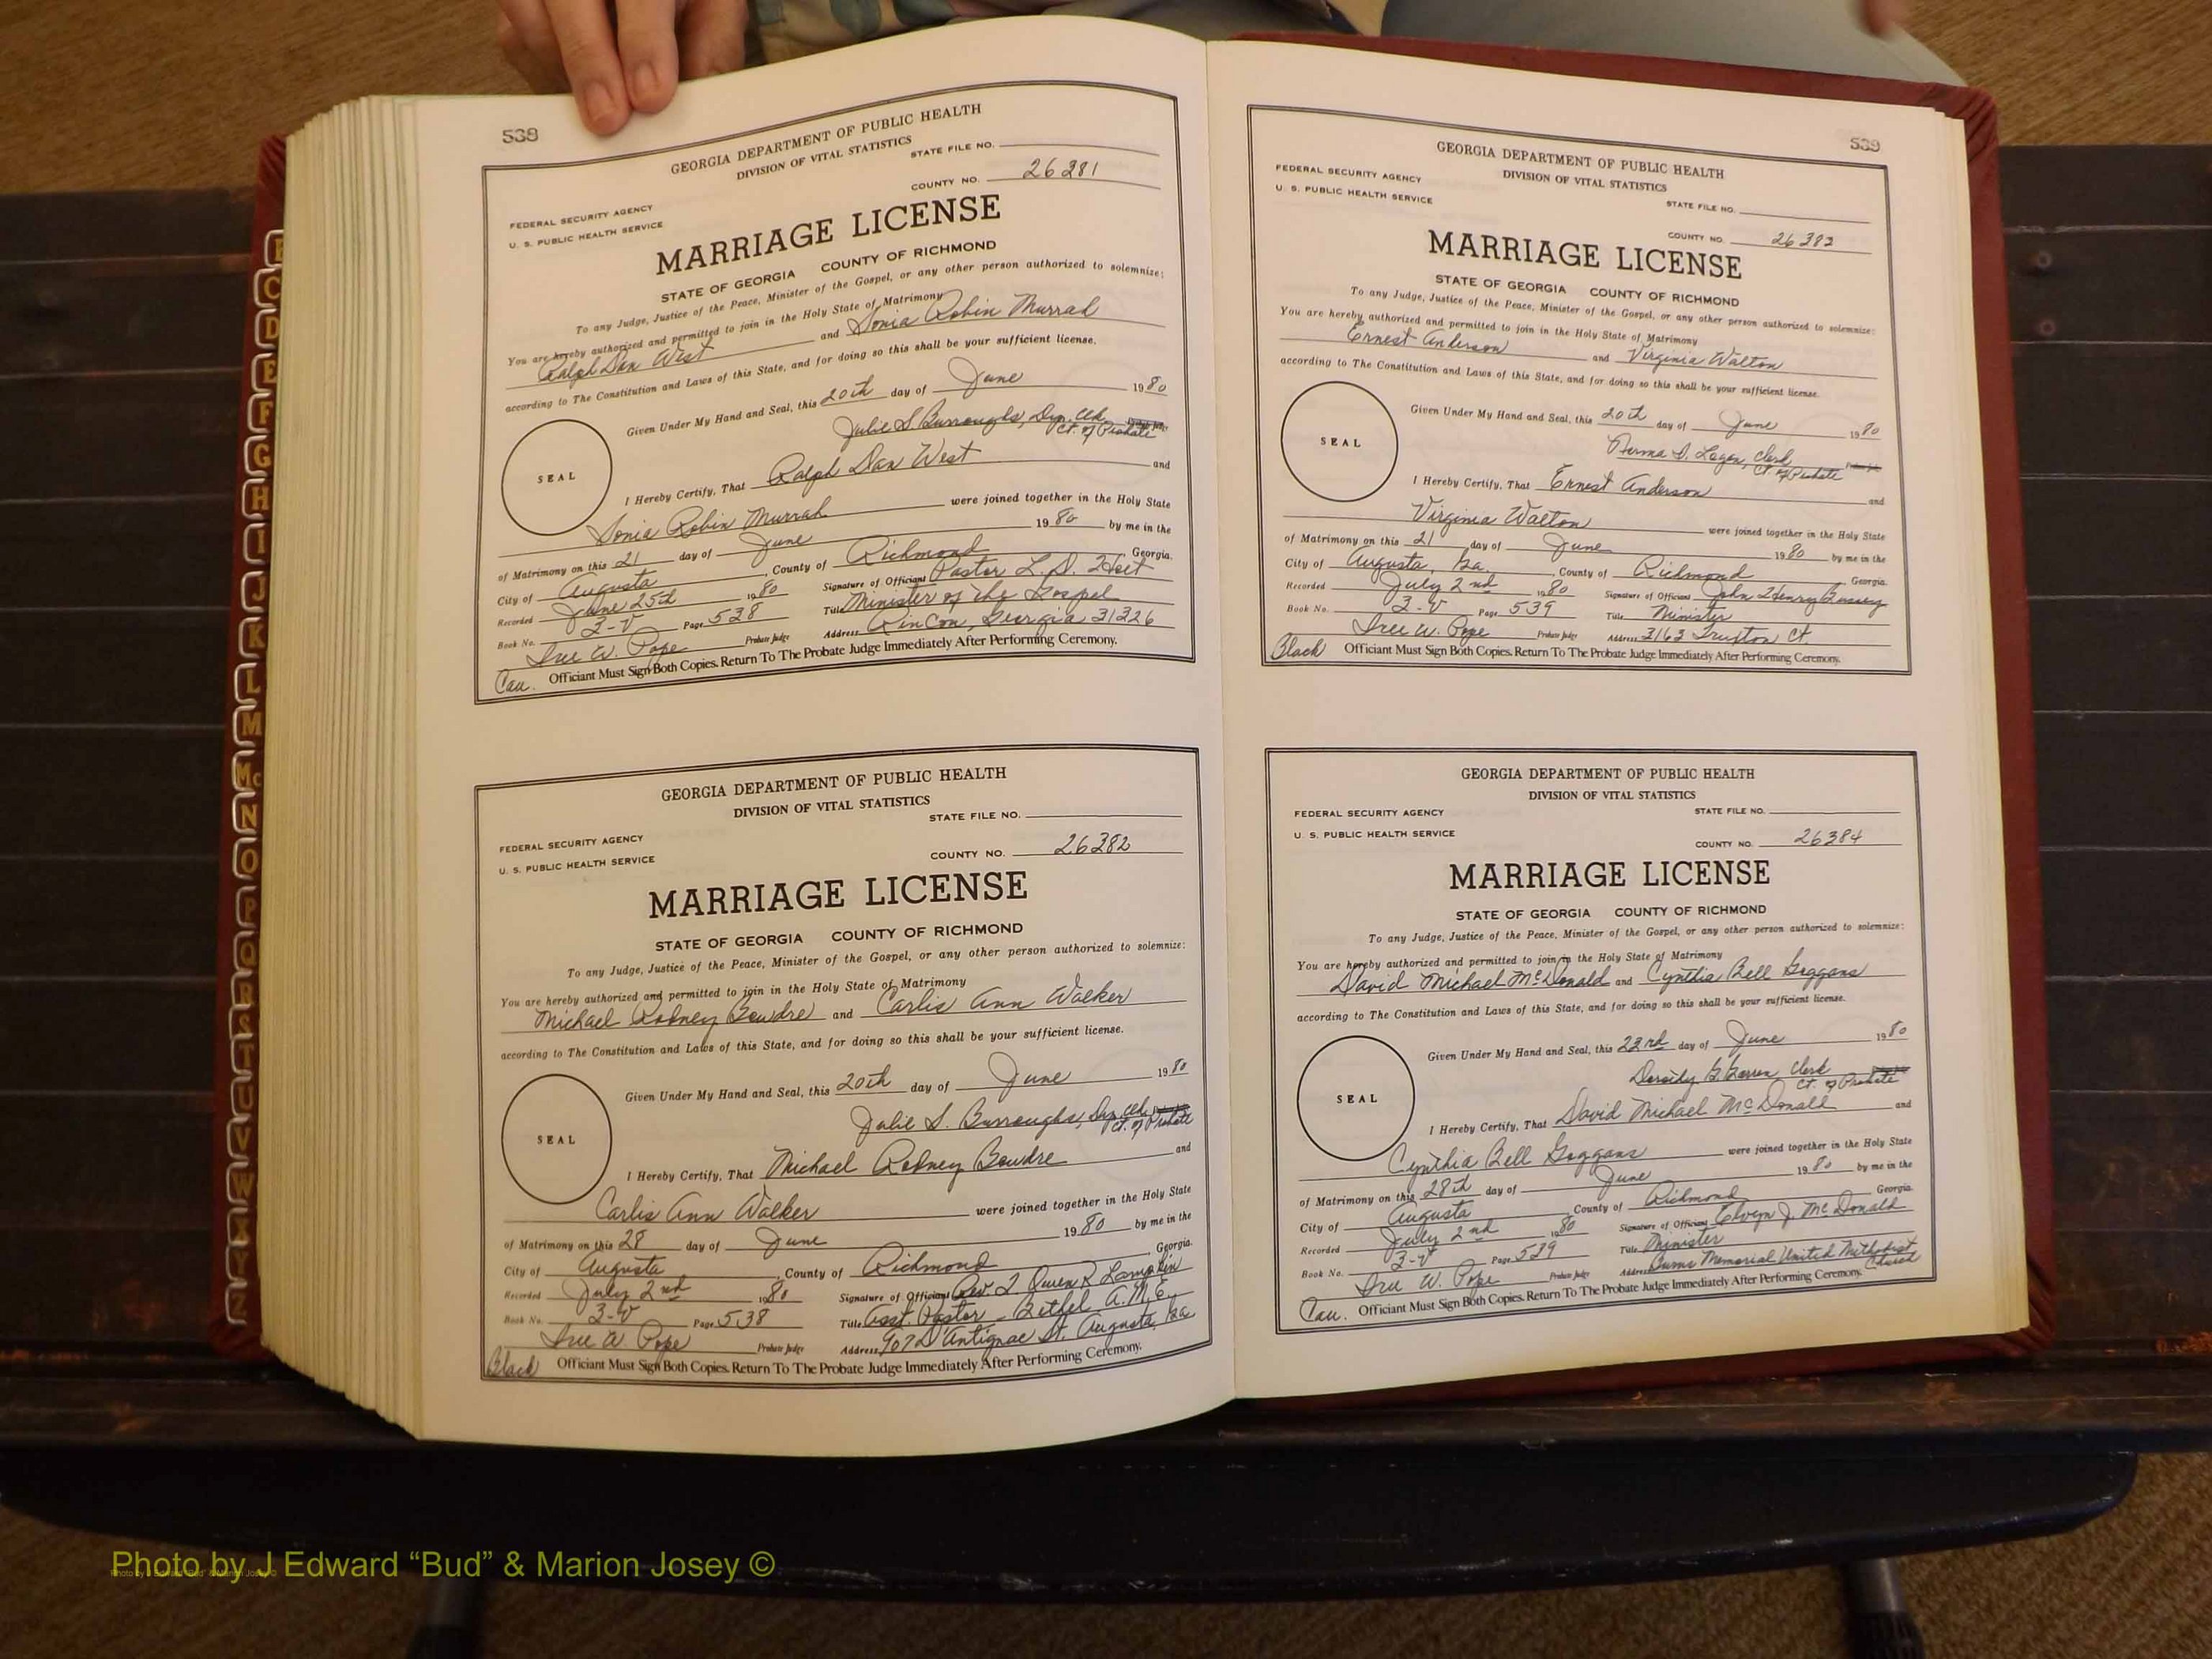 538
GEORGIA DEPARTMENT OF PUBLIC HEALTH
DIVISION OF VITAL STATISTICS
STATE FILE NO.
COUNTY NO. 26381
FEDERAL SECURITY AGENCY
U. S. PUBLIC HEALTH SERVICE
MARRIAGE LICENSE
STATE OF GEORGIA COUNTY OF RICHMOND
To any Judge, Justice of the Peace, Minister of the Gospel, or any other person authorized to solemnize:
You are hereby authorized and permitted to join in the Holy State of Matrimony
Ralph Dan West and Sonia Robin Murrah
according to The Constitution and Laws of this State, and for doing so this shall be your sufficient license.
Given Under My Hand and Seal, this 20th day of June 1980
Julie S. Burroughs, Dep. Clk.
Ct. of Probate
SEAL
I Hereby Certify, That Ralph Dan West and
Sonia Robin Murrah were joined together in the Holy State
of Matrimony on this 21 day of June 1980 by me in the
City of Augusta, County of Richmond, Georgia.
Recorded June 25th 1980 Signature of Officiant Pastor L. D.
Book No. 3-V Page 538 Title Minister of the Gospel
Ire W. Pope Probate Judge Address Rincon, Georgia 31326
Cau. Officiant Must Sign Both Copies. Return To The Probate Judge Immediately After Performing Ceremony.
GEORGIA DEPARTMENT OF PUBLIC HEALTH
DIVISION OF VITAL STATISTICS
STATE FILE NO.
FEDERAL SECURITY AGENCY
U. S. PUBLIC HEALTH SERVICE
COUNTY NO. 26382
MARRIAGE LICENSE
STATE OF GEORGIA COUNTY OF RICHMOND
To any Judge, Justice of the Peace, Minister of the Gospel, or any other person authorized to solemnize:
You are hereby authorized and permitted to join in the Holy State of Matrimony
Michael Rodney Bowdre and Carlis Ann Walker
according to The Constitution and Laws of this State, and for doing so this shall be your sufficient license.
Given Under My Hand and Seal, this 20th day of June 1980
Julie S. Burroughs, Dep. Clk.
Ct. of Probate
SEAL
I Hereby Certify, That Michael Rodney Bowdre and
Carlis Ann Walker were joined together in the Holy State
of Matrimony on this 28 day of June 1980 by me in the
City of Augusta, County of Richmond, Georgia.
Recorded July 2nd 1980 Signature of Officiant Rev. Owen R. Lampkin
Book No. 3-V Page 538 Title Asst. Pastor - Bethel A.M.E.
Ire W. Pope Probate Judge Address 907 D'Antignac St. Augusta, Ga
Black Officiant Must Sign Both Copies. Return To The Probate Judge Immediately After Performing Ceremony.
539
GEORGIA DEPARTMENT OF PUBLIC HEALTH
DIVISION OF VITAL STATISTICS
FEDERAL SECURITY AGENCY
U. S. PUBLIC HEALTH SERVICE
STATE FILE NO.
COUNTY NO. 26383
MARRIAGE LICENSE
STATE OF GEORGIA COUNTY OF RICHMOND
To any Judge, Justice of the Peace, Minister of the Gospel, or any other person authorized to solemnize:
You are hereby authorized and permitted to join in the Holy State of Matrimony
Ernest Anderson and Virginia Walton
according to The Constitution and Laws of this State, and for doing so this shall be your sufficient license.
Given Under My Hand and Seal, this 20th day of June 1980
D. Logan, Clerk
Ct. of Probate
SEAL
I Hereby Certify, That Ernest Anderson and
Virginia Walton were joined together in the Holy State
of Matrimony on this 21 day of June 1980 by me in the
City of Augusta, Ga., County of Richmond, Georgia.
Recorded July 2nd 1980 Signature of Officiant John Henry Bussey
Book No. 3-V Page 539 Title Minister
Ire W. Pope Probate Judge Address 3163 Truxton Ct
Black Officiant Must Sign Both Copies. Return To The Probate Judge Immediately After Performing Ceremony.
GEORGIA DEPARTMENT OF PUBLIC HEALTH
DIVISION OF VITAL STATISTICS
FEDERAL SECURITY AGENCY
STATE FILE NO.
U. S. PUBLIC HEALTH SERVICE
COUNTY NO. 26384
MARRIAGE LICENSE
STATE OF GEORGIA COUNTY OF RICHMOND
To any Judge, Justice of the Peace, Minister of the Gospel, or any other person authorized to solemnize:
You are hereby authorized and permitted to join in the Holy State of Matrimony
David Michael McDonald and Cynthia Bell Goggans
according to The Constitution and Laws of this State, and for doing so this shall be your sufficient license.
Given Under My Hand and Seal, this 23rd day of June 1980
Clerk
Ct. of Probate
SEAL
I Hereby Certify, That David Michael McDonald and
Cynthia Bell Goggans were joined together in the Holy State
of Matrimony on this 28th day of June 1980 by me in the
City of Augusta, County of Richmond, Georgia.
Recorded July 2nd 1980 Signature of Officiant Elvyn J. McDonald
Book No. 3-V Page 539 Title Minister
Ire W. Pope Probate Judge Address Burns Memorial United Methodist Church
Cau. Officiant Must Sign Both Copies. Return To The Probate Judge Immediately After Performing Ceremony.
B
C
D
E
F
G
H
I
J
K
L
M
Mc
N
O
P
Q
R
S
T
U
V
W
X
Y
Z
Photo by J Edward “Bud” & Marion Josey ©